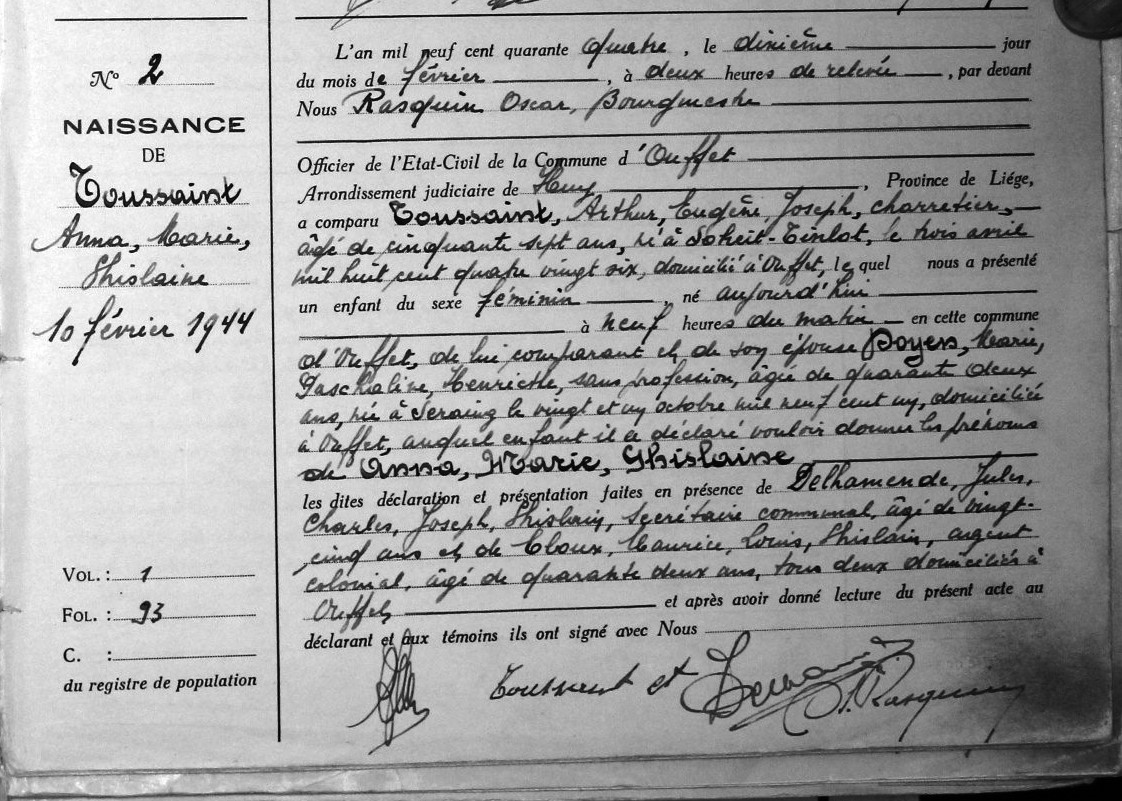 N° 2
NAISSANCE
DE
Toussaint
Anna, Marie,
Ghislaine
10 février 1944
VOL. : 1
FOL. : 93
C. :
du registre de population
L'an mil neuf cent quarante quatre, le dixième jour
du mois de février, à deux heures de relevée, par devant
Nous Rasquin Oscar, Bourgmestre
Officier de l'Etat-Civil de la Commune d'Ouffet
Arrondissement judiciaire de Huy, Province de Liége,
a comparu Toussaint, Arthur, Eugène, Joseph, charretier,
âgé de cinquante sept ans, né à Soheit-Tinlot, le trois avril
mil huit cent quatre vingt six, domicilié à Ouffet, lequel nous a présenté
un enfant du sexe féminin, né aujourd'hui
à neuf heures du matin en cette commune
d'Ouffet, de lui comparant et de son épouse Doyen, Marie,
Paschaline, Henriette, sans profession, âgée de quarante deux
ans, née à Seraing le vingt et un octobre mil neuf cent un, domiciliée
à Ouffet, auquel enfant il a déclaré vouloir donner les prénoms
de Anna, Marie, Ghislaine
les dites déclaration et présentation faites en présence de Delhamende, Jules,
Charles, Joseph, Ghislain, secrétaire communal, âgé de vingt-
cinq ans et de Cloux, Maurice, Louis, Ghislain, argent
colonial, âgé de quarante deux ans, tous deux domiciliés à
Ouffet, et après avoir donné lecture du présent acte au
déclarant et aux témoins ils ont signé avec Nous
Toussaint et
O. Rasquin